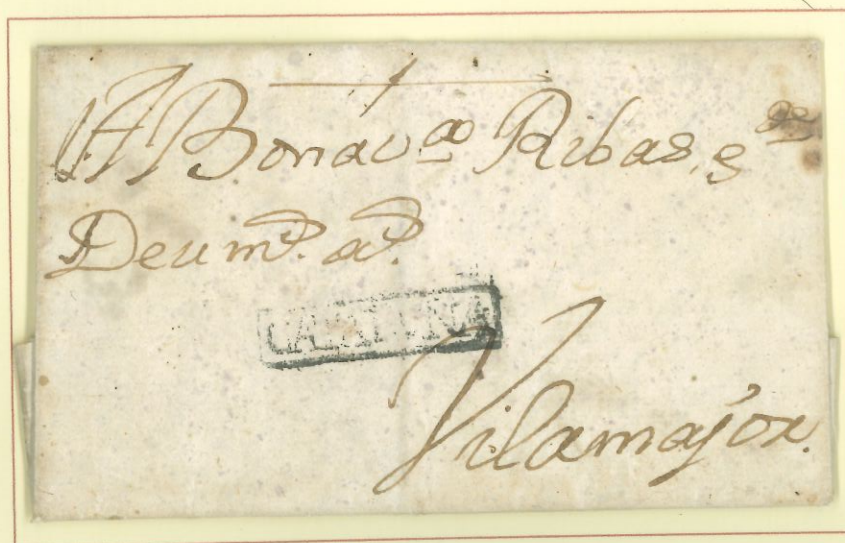 A Bonav.ª Ribas, g.de
Deu m.s a.s
CATALUÑA
Vilamajor.